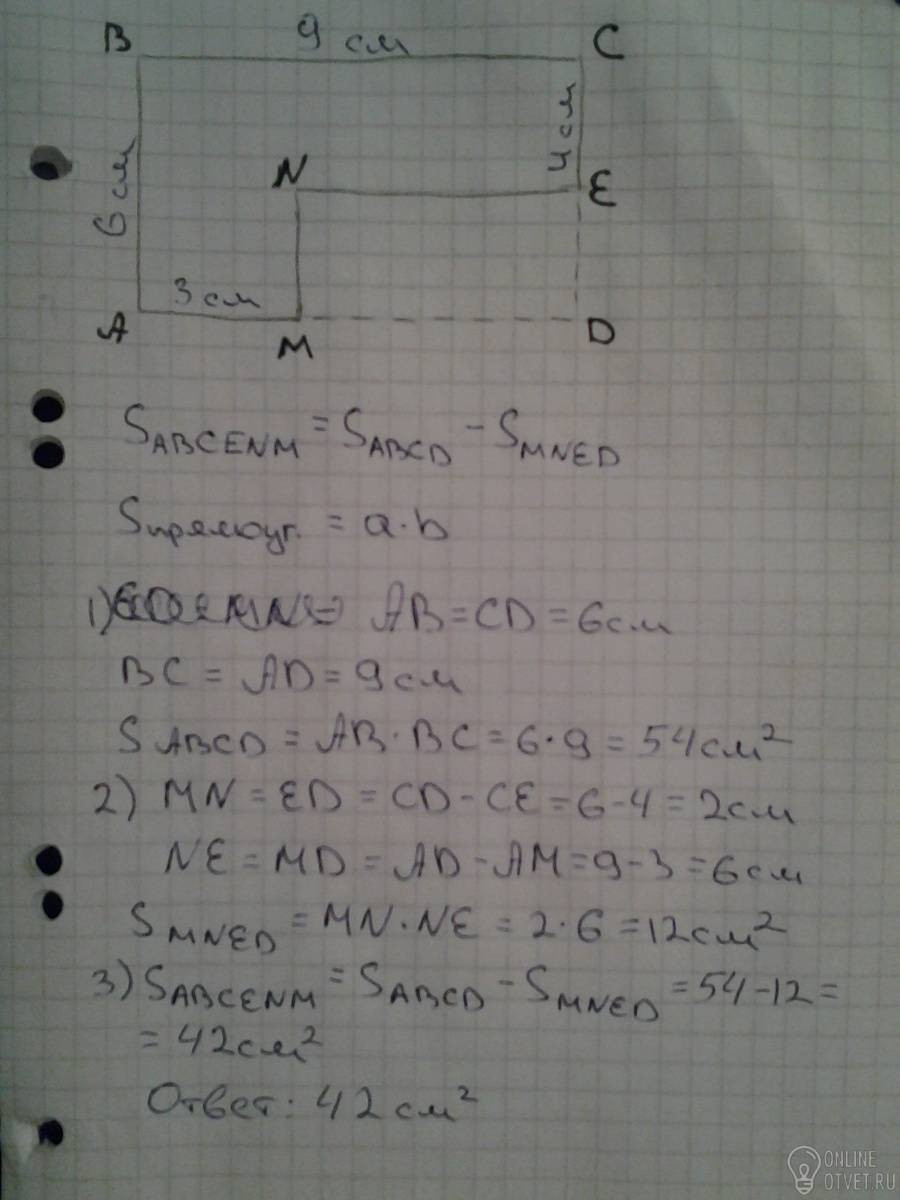 B 9 см C
6 см
4 см
N E
3 см
A M D
S ABCENM = S ABCD - S MNED
S прямоуг. = a·b
1) AB = CD = 6 см
BC = AD = 9 см
S ABCD = AB·BC = 6·9 = 54 см²
2) MN = ED = CD - CE = 6 - 4 = 2 см
NE = MD = AD - AM = 9 - 3 = 6 см
S MNED = MN·NE = 2·6 = 12 см²
3) S ABCENM = S ABCD - S MNED = 54 - 12 =
= 42 см²
Ответ: 42 см²
ONLINE
OTVET.RU